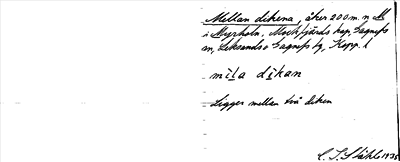 Mellan dikena, åker 200 m. n
i Myrholn, Mockfjärds kap., Gagnefs
sn, Leksands o Gagnefs tg, Kopp. l
mila dikan
Ligger mellan två diken
C. S. Ståhl 1935